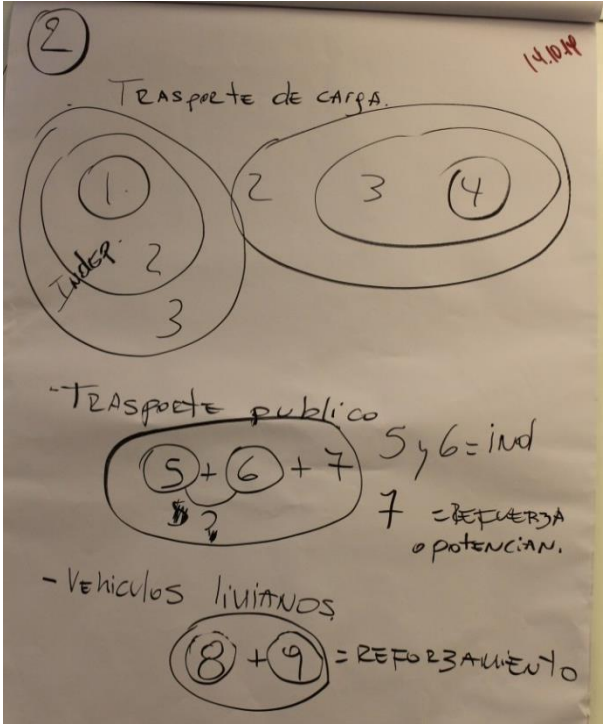 2
14.10.14
TRASPORTE de CARGA.
1. 2 3 4
INDEP. 2
3
-TRASPORTE publico
5 + 6 + 7 5 y 6 = ind
?
7 = REFUERZA
o potENCIAN.
- VEhiculos liviANOS
8 + 9 = REFORZAMIENTO